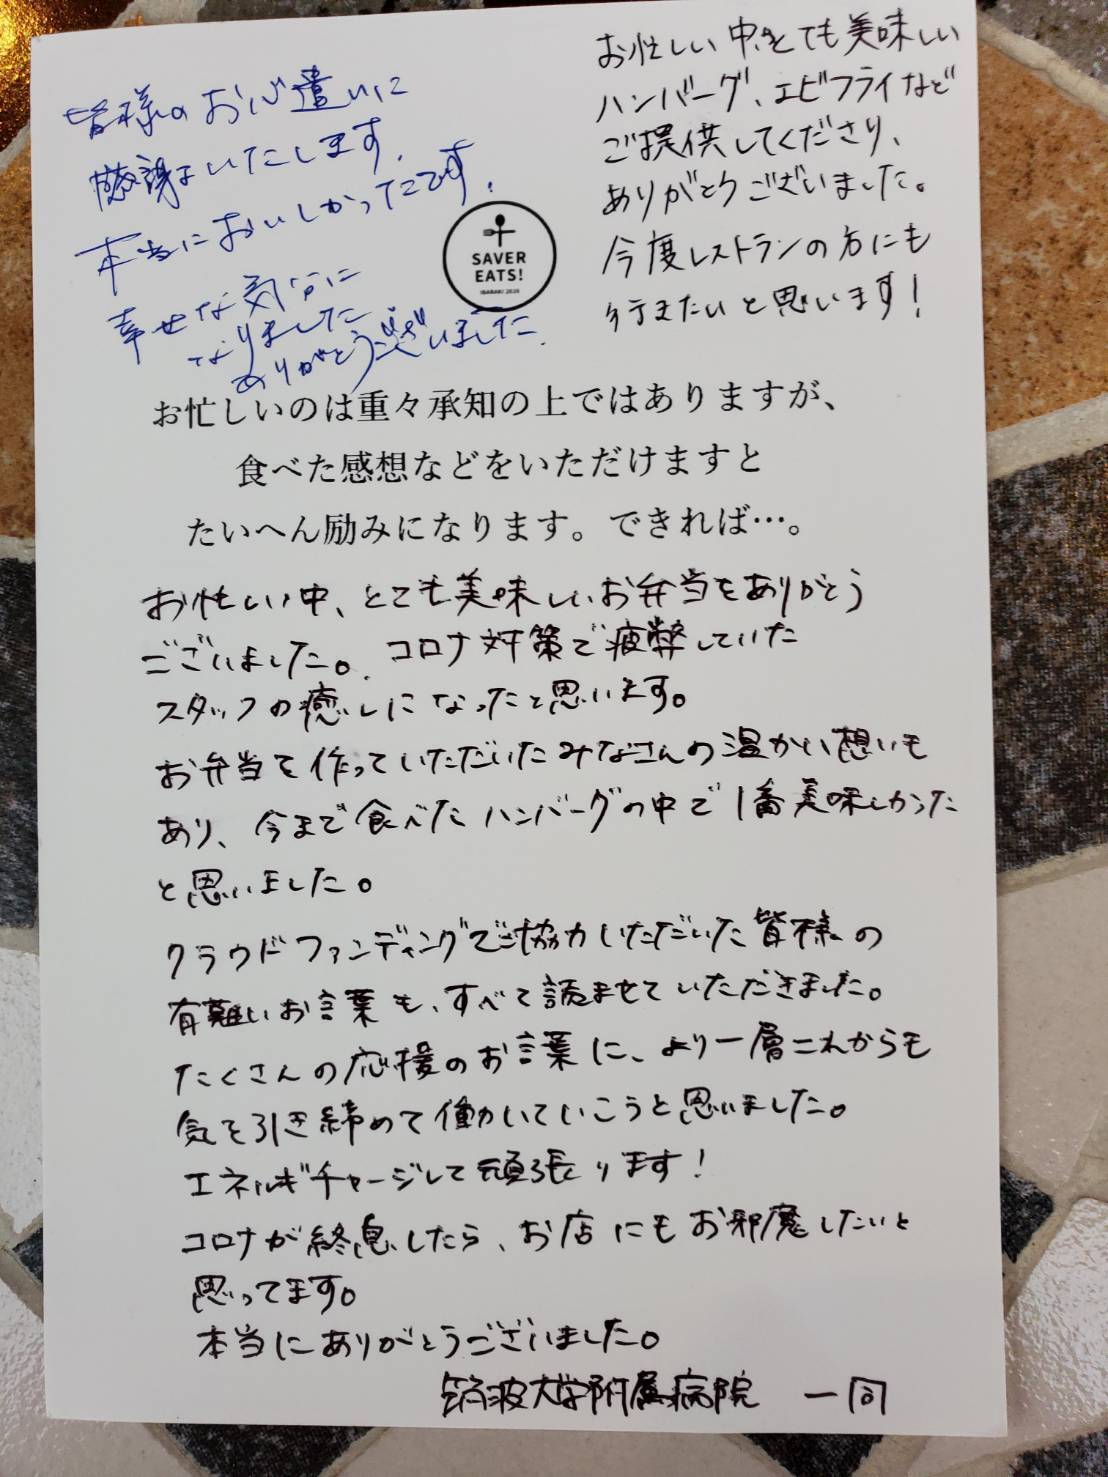 皆様のお心遣いに
感謝いたします。
本当においしかったです!
幸せな気分に
なりました
ありがとうございました。
お忙しい中、とても美味しい
ハンバーグ、エビフライなど
ご提供してくださり、
ありがとうございました。
今度レストランの方にも
行きたいと思います!
SAVER
EATS!
IBARAKI 2020
お忙しいのは重々承知の上ではありますが、
食べた感想などをいただけますと
たいへん励みになります。できれば…。
お忙しい中、とても美味しいお弁当をありがとう
ございました。コロナ対策で疲弊していた
スタッフの癒しになったと思います。
お弁当を作っていただいたみなさんの温かい想いも
あり、今まで食べたハンバーグの中で1番美味しかった
と思いました。
クラウドファンディングでご協力いただいた皆様の
有難いお言葉も、すべて読ませていただきました。
たくさんの応援のお言葉に、より一層これからも
気を引き締めて働いていこうと思いました。
エネルギチャージして頑張ります!
コロナが終息したら、お店にもお邪魔したいと
思ってます。
本当にありがとうございました。
筑波大学附属病院 一同